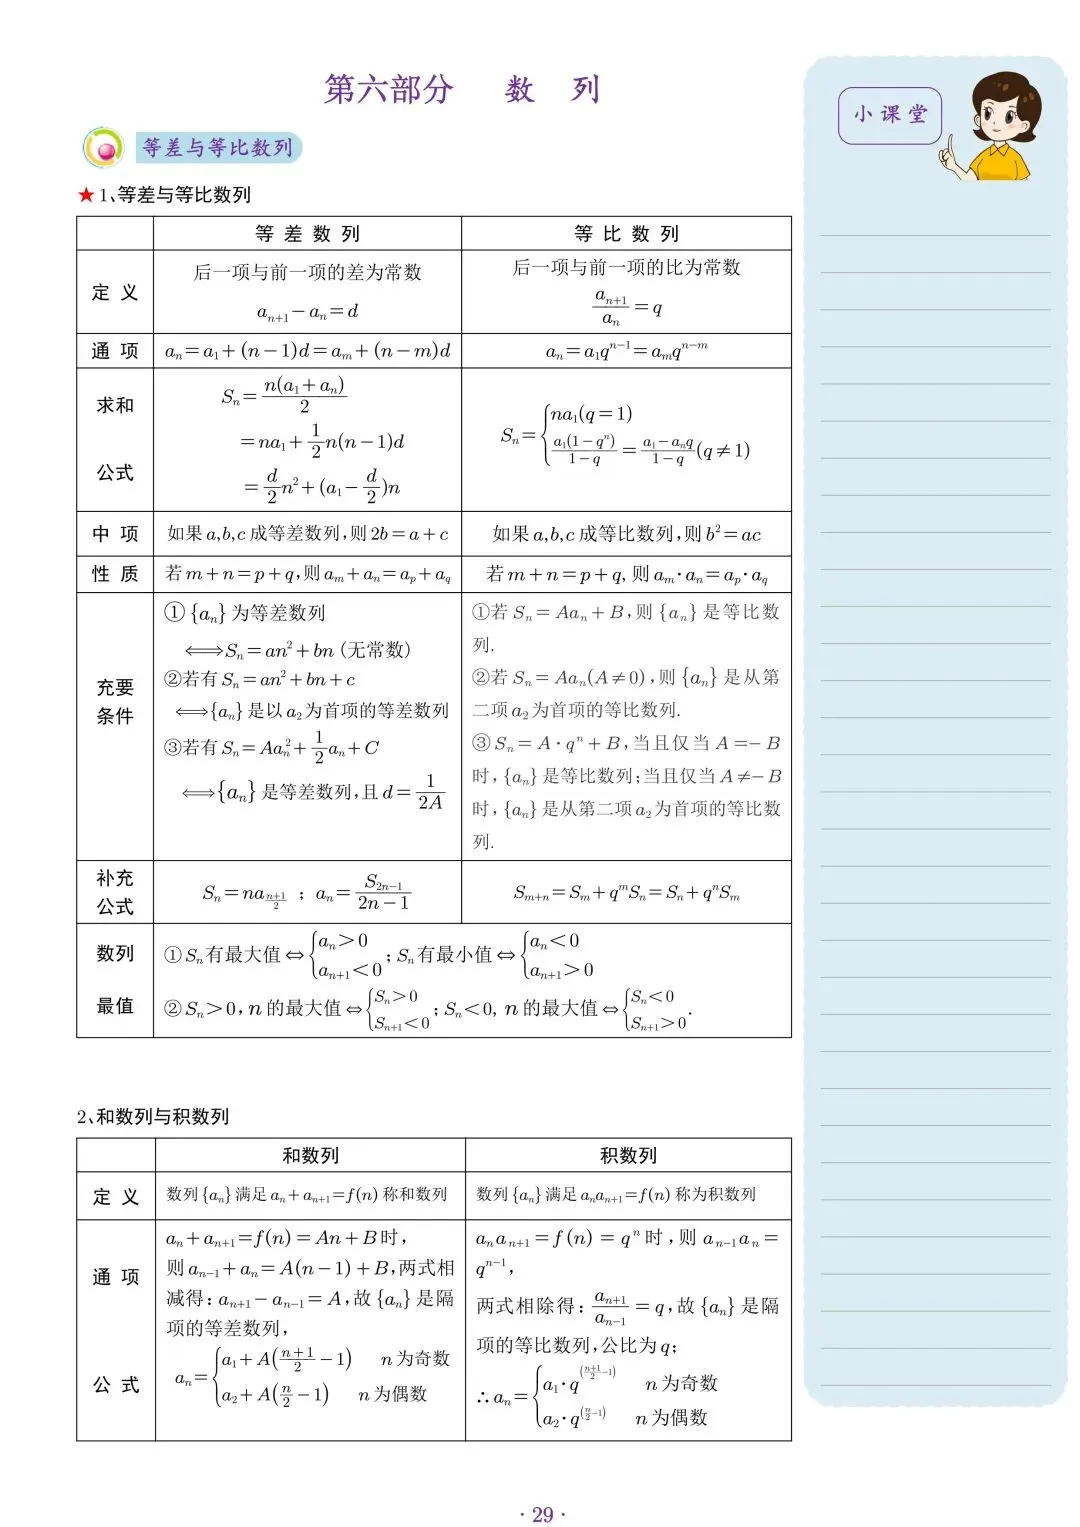 第六部分 数 列
小课堂
等差与等比数列
★1、等差与等比数列
等 差 数 列 等 比 数 列
定 义 后一项与前一项的差为常数 aₙ₊₁－aₙ＝d 后一项与前一项的比为常数 aₙ₊₁/aₙ＝q
通 项 aₙ＝a₁＋(n－1)d＝aₘ＋(n－m)d aₙ＝a₁qⁿ⁻¹＝aₘqⁿ⁻ᵐ
求和
公式
Sₙ＝n(a₁＋aₙ)/2
＝na₁＋1/2 n(n－1)d
＝d/2 n²＋(a₁－d/2)n
Sₙ＝{na₁(q＝1)
a₁(1－qⁿ)/(1－q)＝(a₁－aₙq)/(1－q)(q≠1)
中 项 如果a,b,c成等差数列,则2b＝a＋c 如果a,b,c成等比数列,则b²＝ac
性 质 若m＋n＝p＋q,则aₘ＋aₙ＝aₚ＋a_q 若m＋n＝p＋q,则aₘ·aₙ＝aₚ·a_q
充要
条件
①{aₙ}为等差数列
⟺Sₙ＝an²＋bn(无常数)
②若有Sₙ＝an²＋bn＋c
⟺{aₙ}是以a₂为首项的等差数列
③若有Sₙ＝Aaₙ²＋1/2 aₙ＋C
⟺{aₙ}是等差数列,且d＝1/2A
①若Sₙ＝Aaₙ＋B,则{aₙ}是等比数
列.
②若Sₙ＝Aaₙ(A≠0),则{aₙ}是从第
二项a₂为首项的等比数列.
③Sₙ＝A·qⁿ＋B,当且仅当A＝－B
时,{aₙ}是等比数列;当且仅当A≠－B
时,{aₙ}是从第二项a₂为首项的等比数
列.
补充
公式
Sₙ＝na_{(n+1)/2} ; aₙ＝S₂ₙ₋₁/(2n－1)
Sₘ₊ₙ＝Sₘ＋qᵐSₙ＝Sₙ＋qⁿSₘ
数列
最值
①Sₙ有最大值⇔{aₙ＞0 aₙ₊₁＜0 ; Sₙ有最小值⇔{aₙ＜0 aₙ₊₁＞0
②Sₙ＞0, n的最大值⇔{Sₙ＞0 Sₙ₊₁＜0 ; Sₙ＜0, n的最大值⇔{Sₙ＜0 Sₙ₊₁＞0.
2、和数列与积数列
和数列 积数列
定 义 数列{aₙ}满足aₙ＋aₙ₊₁＝f(n)称和数列 数列{aₙ}满足aₙaₙ₊₁＝f(n)称为积数列
通 项
公 式
aₙ＋aₙ₊₁＝f(n)＝An＋B时,
则aₙ₋₁＋aₙ＝A(n－1)＋B,两式相
减得:aₙ₊₁－aₙ₋₁＝A,故{aₙ}是隔
项的等差数列,
aₙ＝{a₁＋A((n＋1)/2－1) n为奇数
a₂＋A(n/2－1) n为偶数
aₙaₙ₊₁＝f(n)＝qⁿ时,则aₙ₋₁aₙ＝
qⁿ⁻¹,
两式相除得:aₙ₊₁/aₙ₋₁＝q,故{aₙ}是隔
项的等比数列,公比为q;
∴aₙ＝{a₁·q^((n+1)/2－1) n为奇数
a₂·q^(n/2－1) n为偶数
·29·